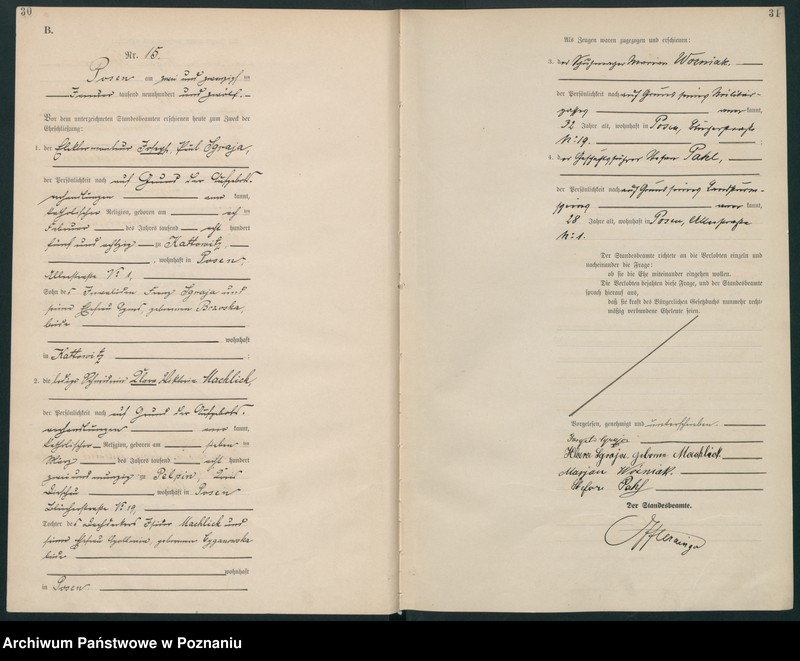 30
B.
Nr. 15.
Posen am zwei und zwanzigsten
Januar tausend neunhundert und zwölf.
Vor dem unterzeichneten Standesbeamten erschienen heute zum Zweck der
Eheschließung:
1. der Elektromonteur Joseph Paul Sgraja,
der Persönlichkeit nach auf Grund der Aufgebots-
verhandlungen anerkannt,
katholischer Religion, geboren am
Februar des Jahres tausend acht hundert
fünf und achtzig zu Kattowitz,
, wohnhaft in Posen,
straße Nr. 1,
Sohn des Invaliden Franz Sgraja und
seiner Ehefrau Agnes, geborenen Brzoska,
beide
wohnhaft
in Kattowitz ;
2. die ledige Schneiderin Klara Viktoria Machlick,
der Persönlichkeit nach auf Grund der Aufgebots-
verhandlungen anerkannt,
katholischer Religion, geboren am sieben ten
März des Jahres tausend acht hundert
zwei und neunzig zu Pelplin, Kreis
Dirschau wohnhaft in Posen
straße Nr. 19,
Tochter des Dachdeckers Isidor Machlick und
seiner Ehefrau Apollonia, geborenen Cyganowska
beide
wohnhaft
in Posen.
31
Als Zeugen waren zugezogen und erschienen:
3. der Schuhmacher Marian Woeniak.
der Persönlichkeit nach auf Grund seines Militär-
passes anerkannt,
32 Jahre alt, wohnhaft in Posen,
Nr. 19. ;
4. der Geschäftsführer Stefan Pahl,
der Persönlichkeit nach auf Grund seines Landsturm-
scheines anerkannt,
28 Jahre alt, wohnhaft in Posen,
Nr. 1.
Der Standesbeamte richtete an die Verlobten einzeln und
nacheinander die Frage:
ob sie die Ehe miteinander eingehen wollen.
Die Verlobten bejahten diese Frage, und der Standesbeamte
sprach hierauf aus,
daß sie kraft des Bürgerlichen Gesetzbuchs nunmehr recht-
mäßig verbundene Eheleute seien.
Vorgelesen, genehmigt und unterschrieben.
Josef Sgraja
Klara Sgraja geborene Machlick.
Marjan Woeniak.
Stefan Pahl
Der Standesbeamte.
Archiwum Państwowe w Poznaniu